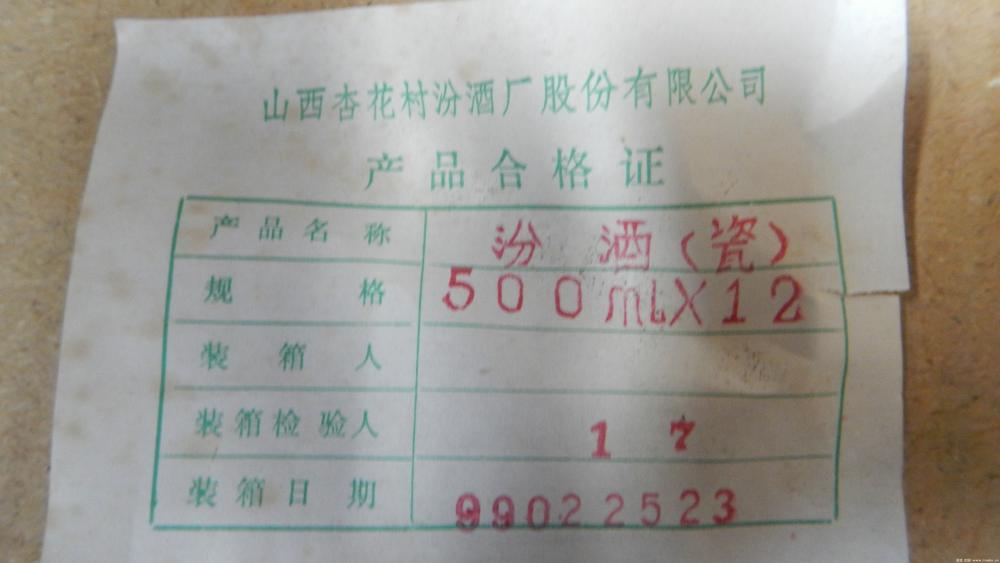 山西杏花村汾酒厂股份有限公司
产品合格证
产品名称 汾酒(瓷)
规格 500mlX12
装箱人
装箱检验人 17
装箱日期 99022523